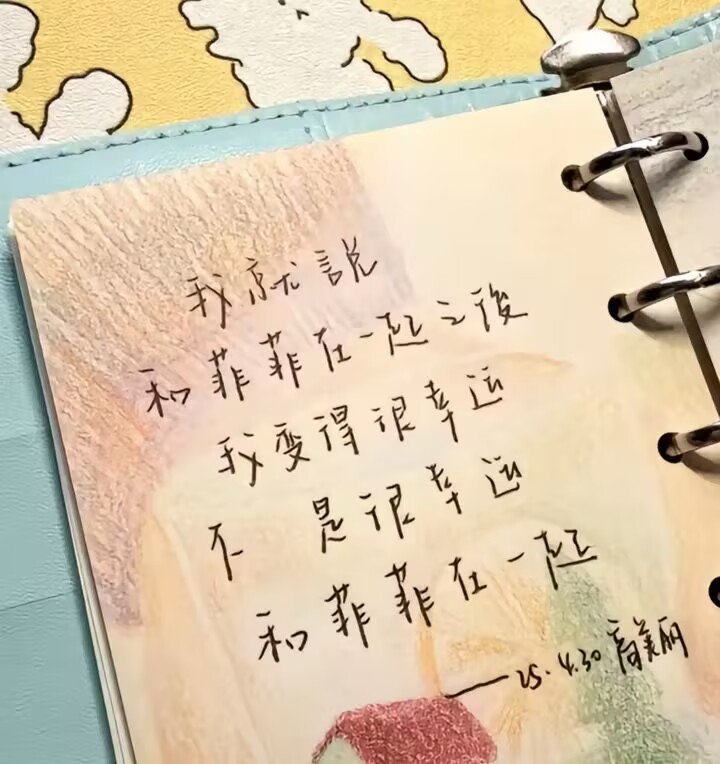 我就説
和菲菲在一起之後
我变得很幸运
不是很幸运
和菲菲在一起
25.4.30. 高美丽